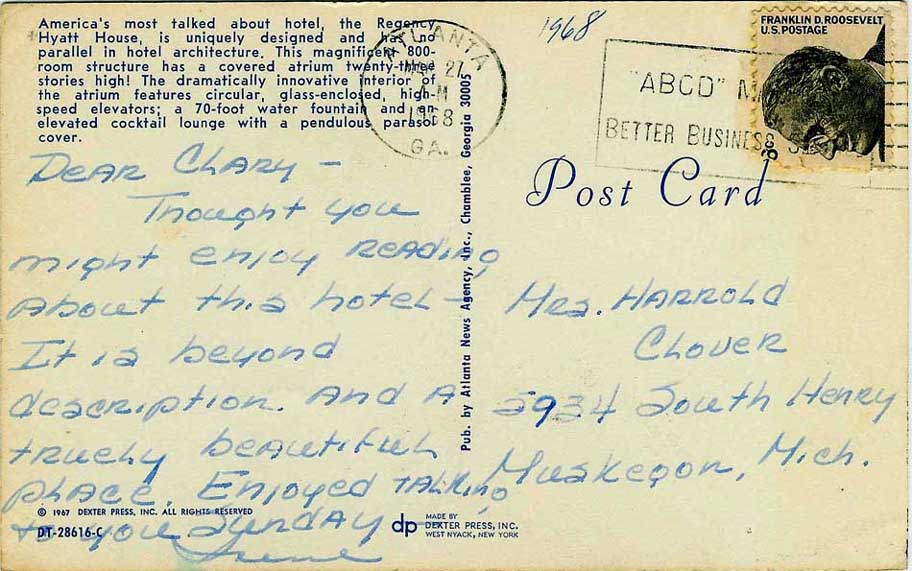 America's most talked about hotel, the Regency
Hyatt House, is uniquely designed and has no
parallel in hotel architecture. This magnificent 800-
room structure has a covered atrium twenty-three
stories high! The dramatically innovative interior of
the atrium features circular, glass-enclosed, high-
speed elevators; a 70-foot water fountain and an
elevated cocktail lounge with a pendulous parasol
cover.
ATLANTA
27
1968
GA.
1968
FRANKLIN D. ROOSEVELT
U.S. POSTAGE
6¢
"ABCD"
BETTER BUSINESS
Post Card
Dear Clary -
Thought you
might enjoy reading
about this hotel -
It is beyond
description. And a
truely beautiful
place. Enjoyed talking
to you Sunday -
Irene
Pub. by Atlanta News Agency, Inc., Chamblee, Georgia 30005
Mrs. Harrold
Clover
2934 South Henry
Muskegon, Mich.
© 1967 DEXTER PRESS, INC. ALL RIGHTS RESERVED
DT-28616-C
dp
MADE BY
DEXTER PRESS, INC.
WEST NYACK, NEW YORK